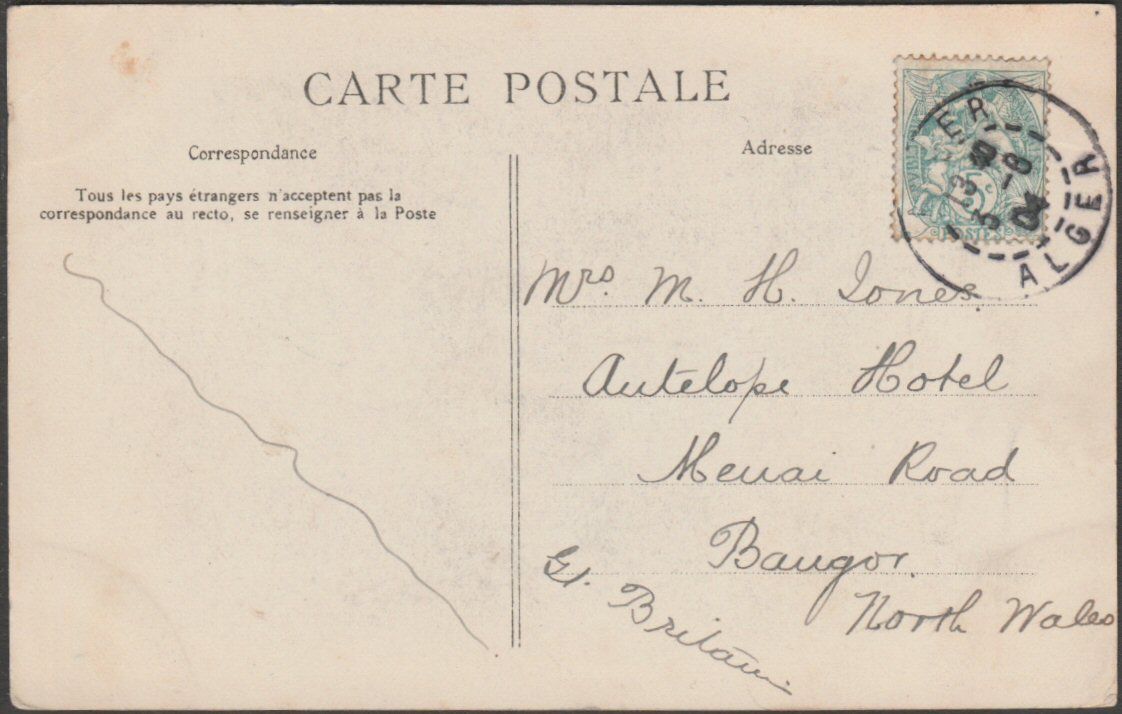 CARTE POSTALE
Correspondance
Adresse
Tous les pays étrangers n'acceptent pas la
correspondance au recto, se renseigner à la Poste
5c
POSTES
ALGER
ALGER
Mrs. M. H. Jones
Antelope Hotel
Menai Road
Bangor.
North Wales
Gt. Britain